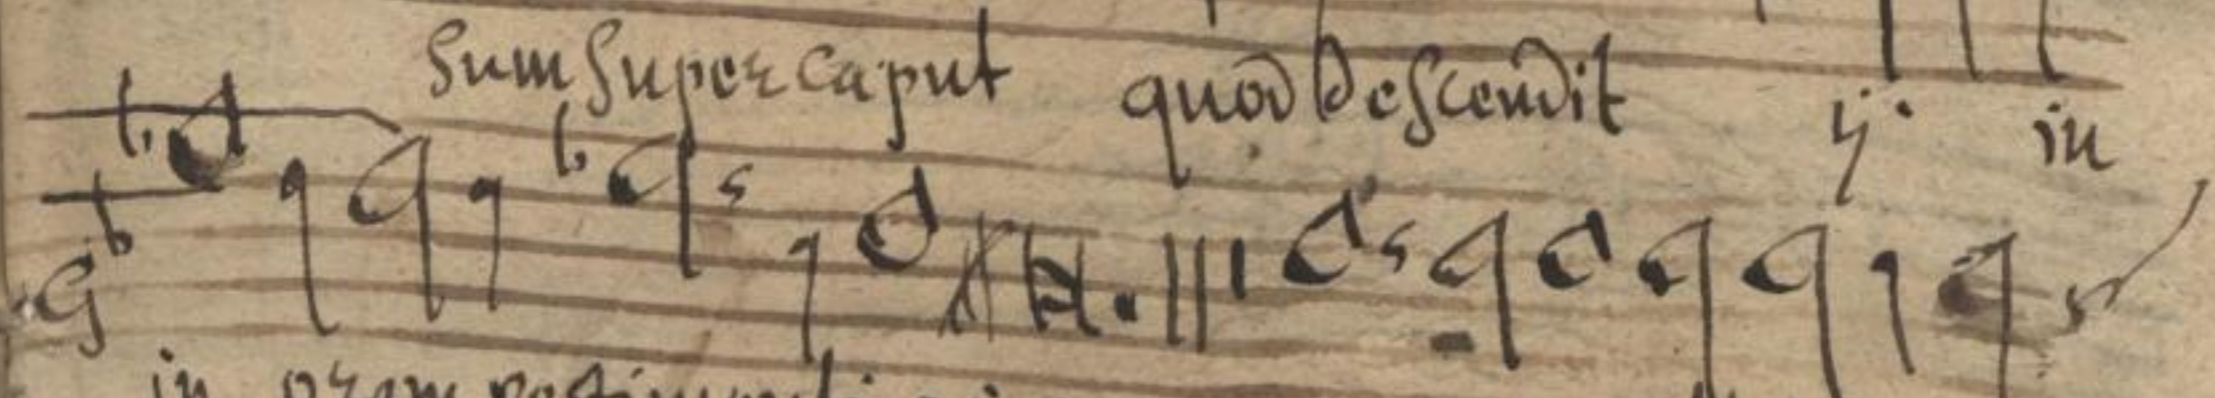 sum super caput quod descendit ij. in
in oram vestimenti